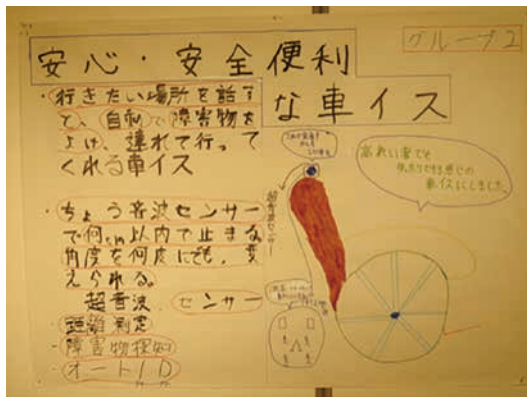 グループ2
安心・安全便利
な車イス
・行きたい場所を話す
と、自動で障害物を
よけ、連れて行って
くれる車イス
・ちょう音波センサー
で何cm以内で止まる。
角度を何度にでも、変
えられる。
超音波 センサー
・距離測定
・障害物探知
・オートID
超音波センサー
高れい者でも
車イスにしました。